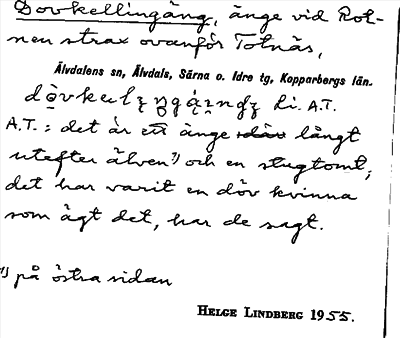 Dovkellingäng, änge vid Rot-
nen strax ovanför Totnäs,
Älvdalens sn, Älvdals, Särna o. Idre tg, Kopparbergs län.
Li. A.T.
A.T.: det är ett änge långt
utefter älven¹) och en slogtomt;
det har varit en döv kvinna
som ägt det, har de sagt.
¹) på östra sidan
HELGE LINDBERG 1955.